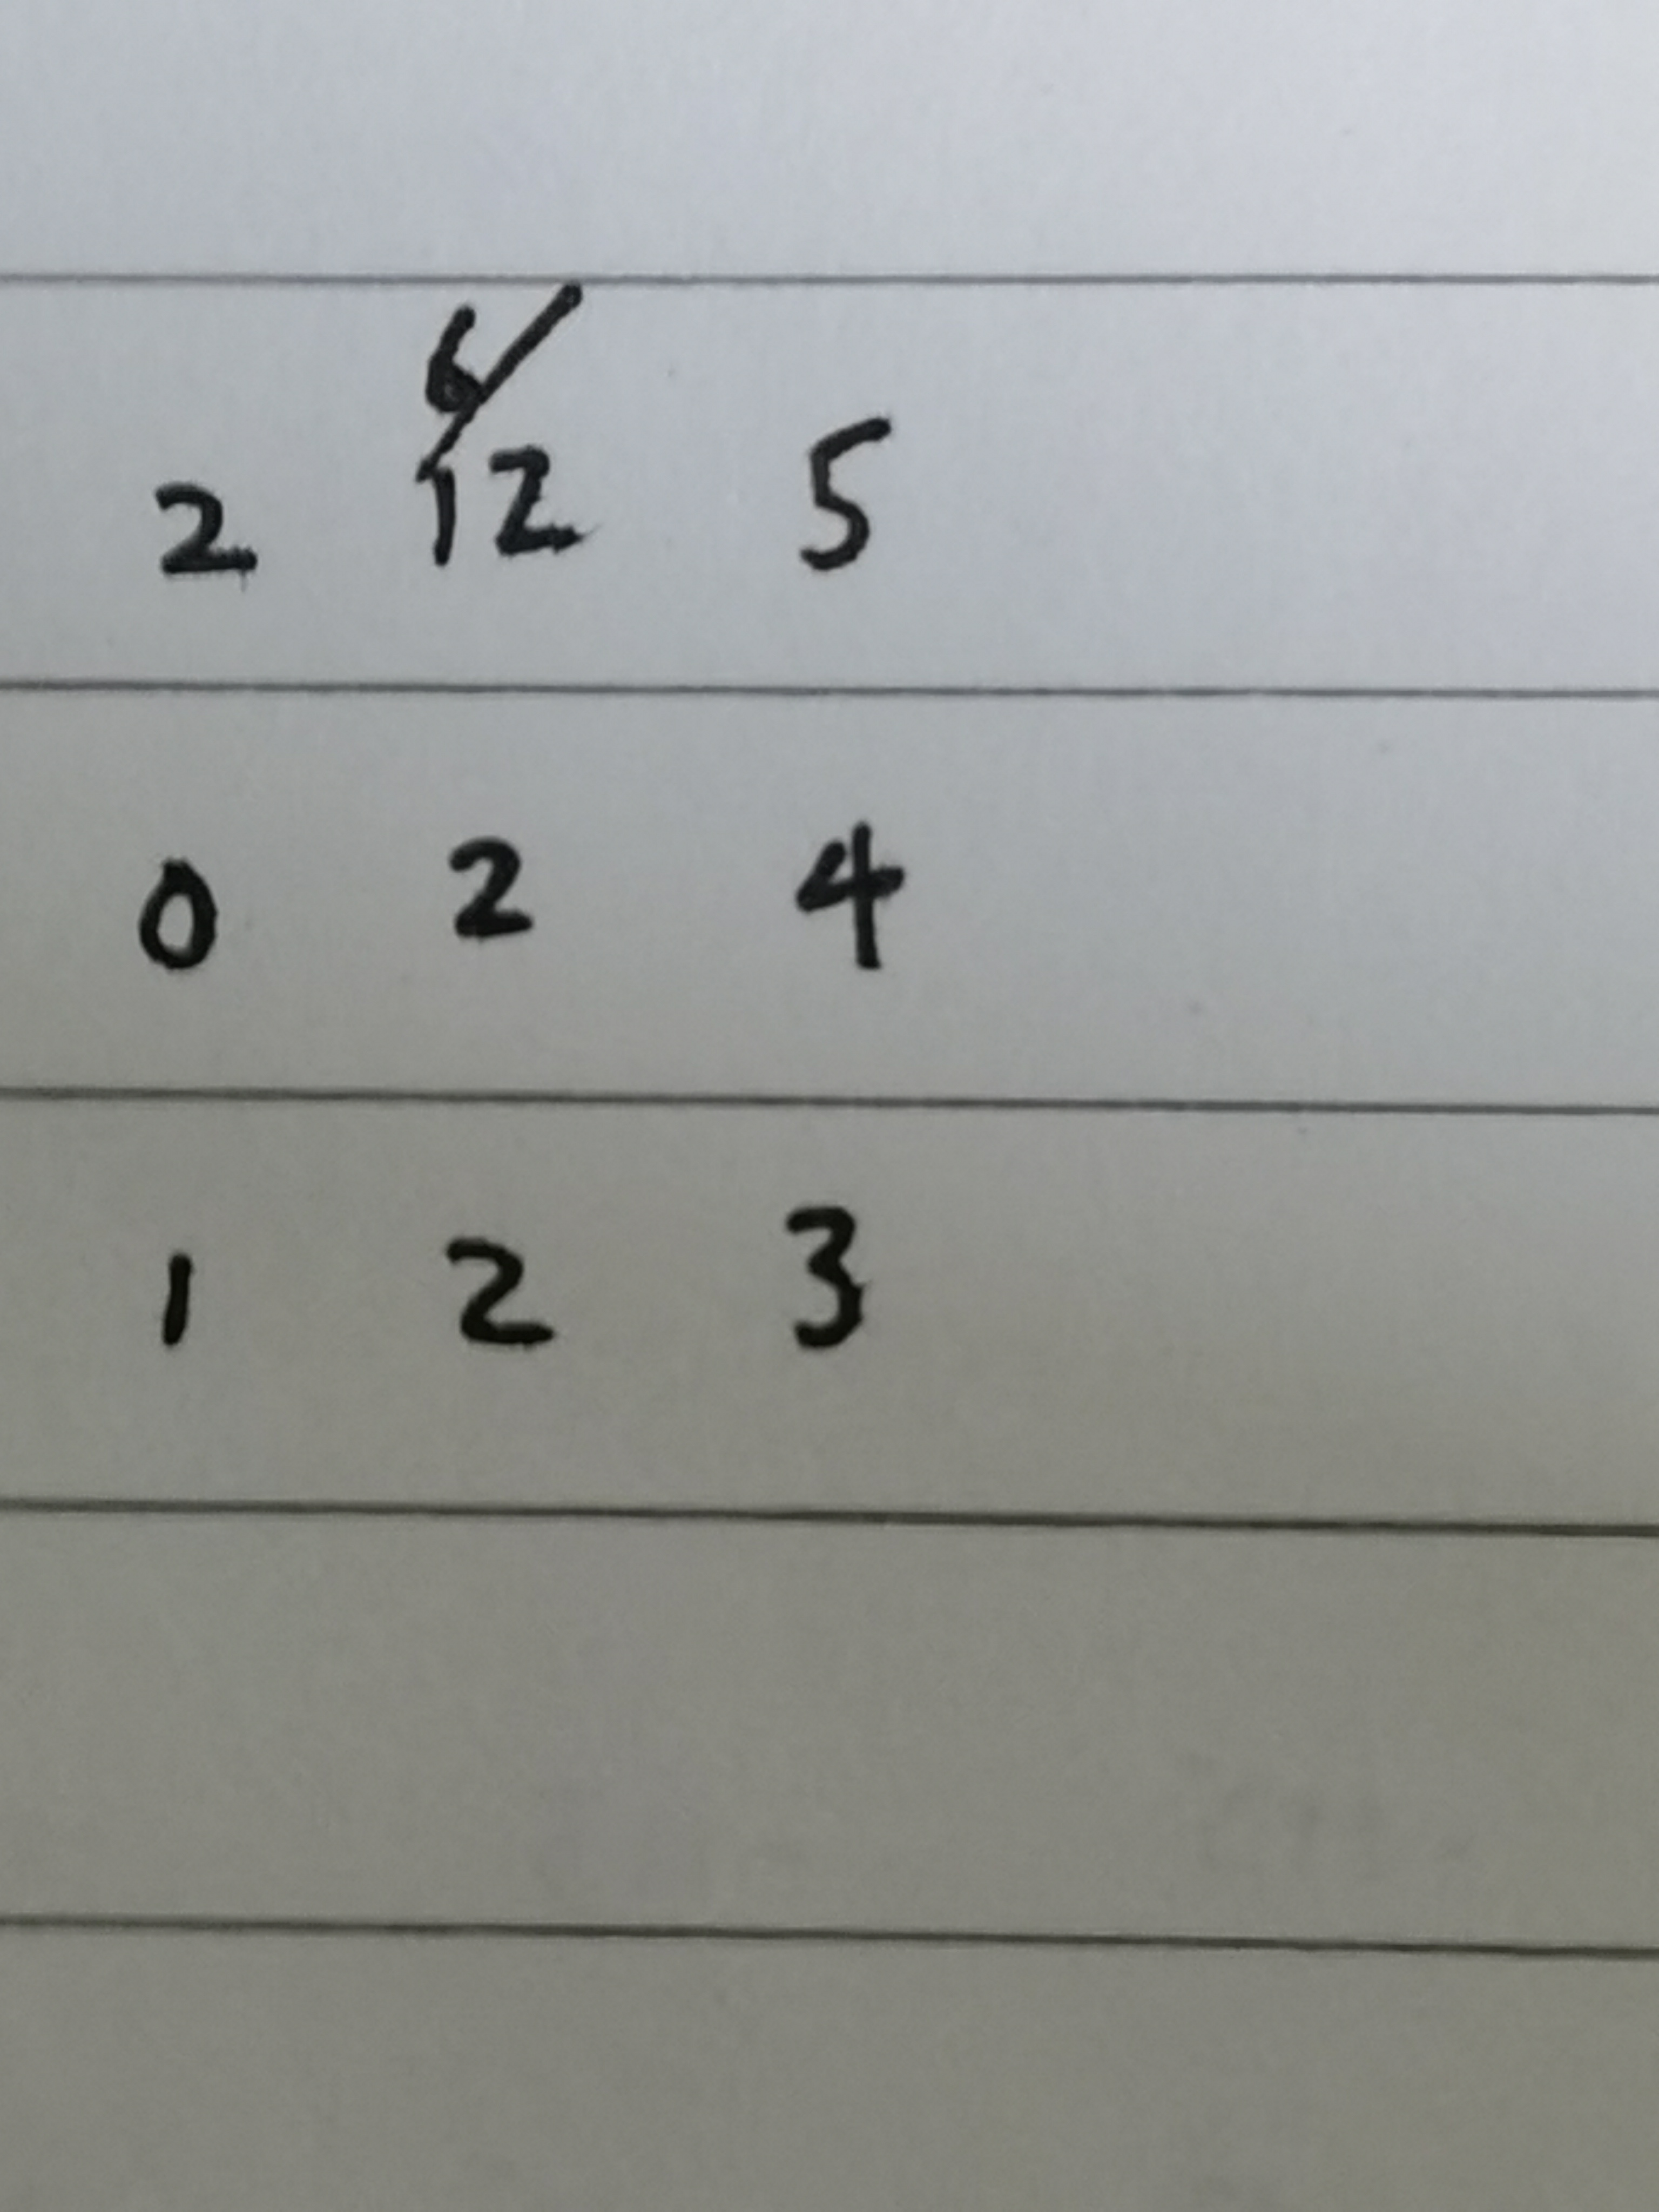 2 12 5
0 2 4
1 2 3